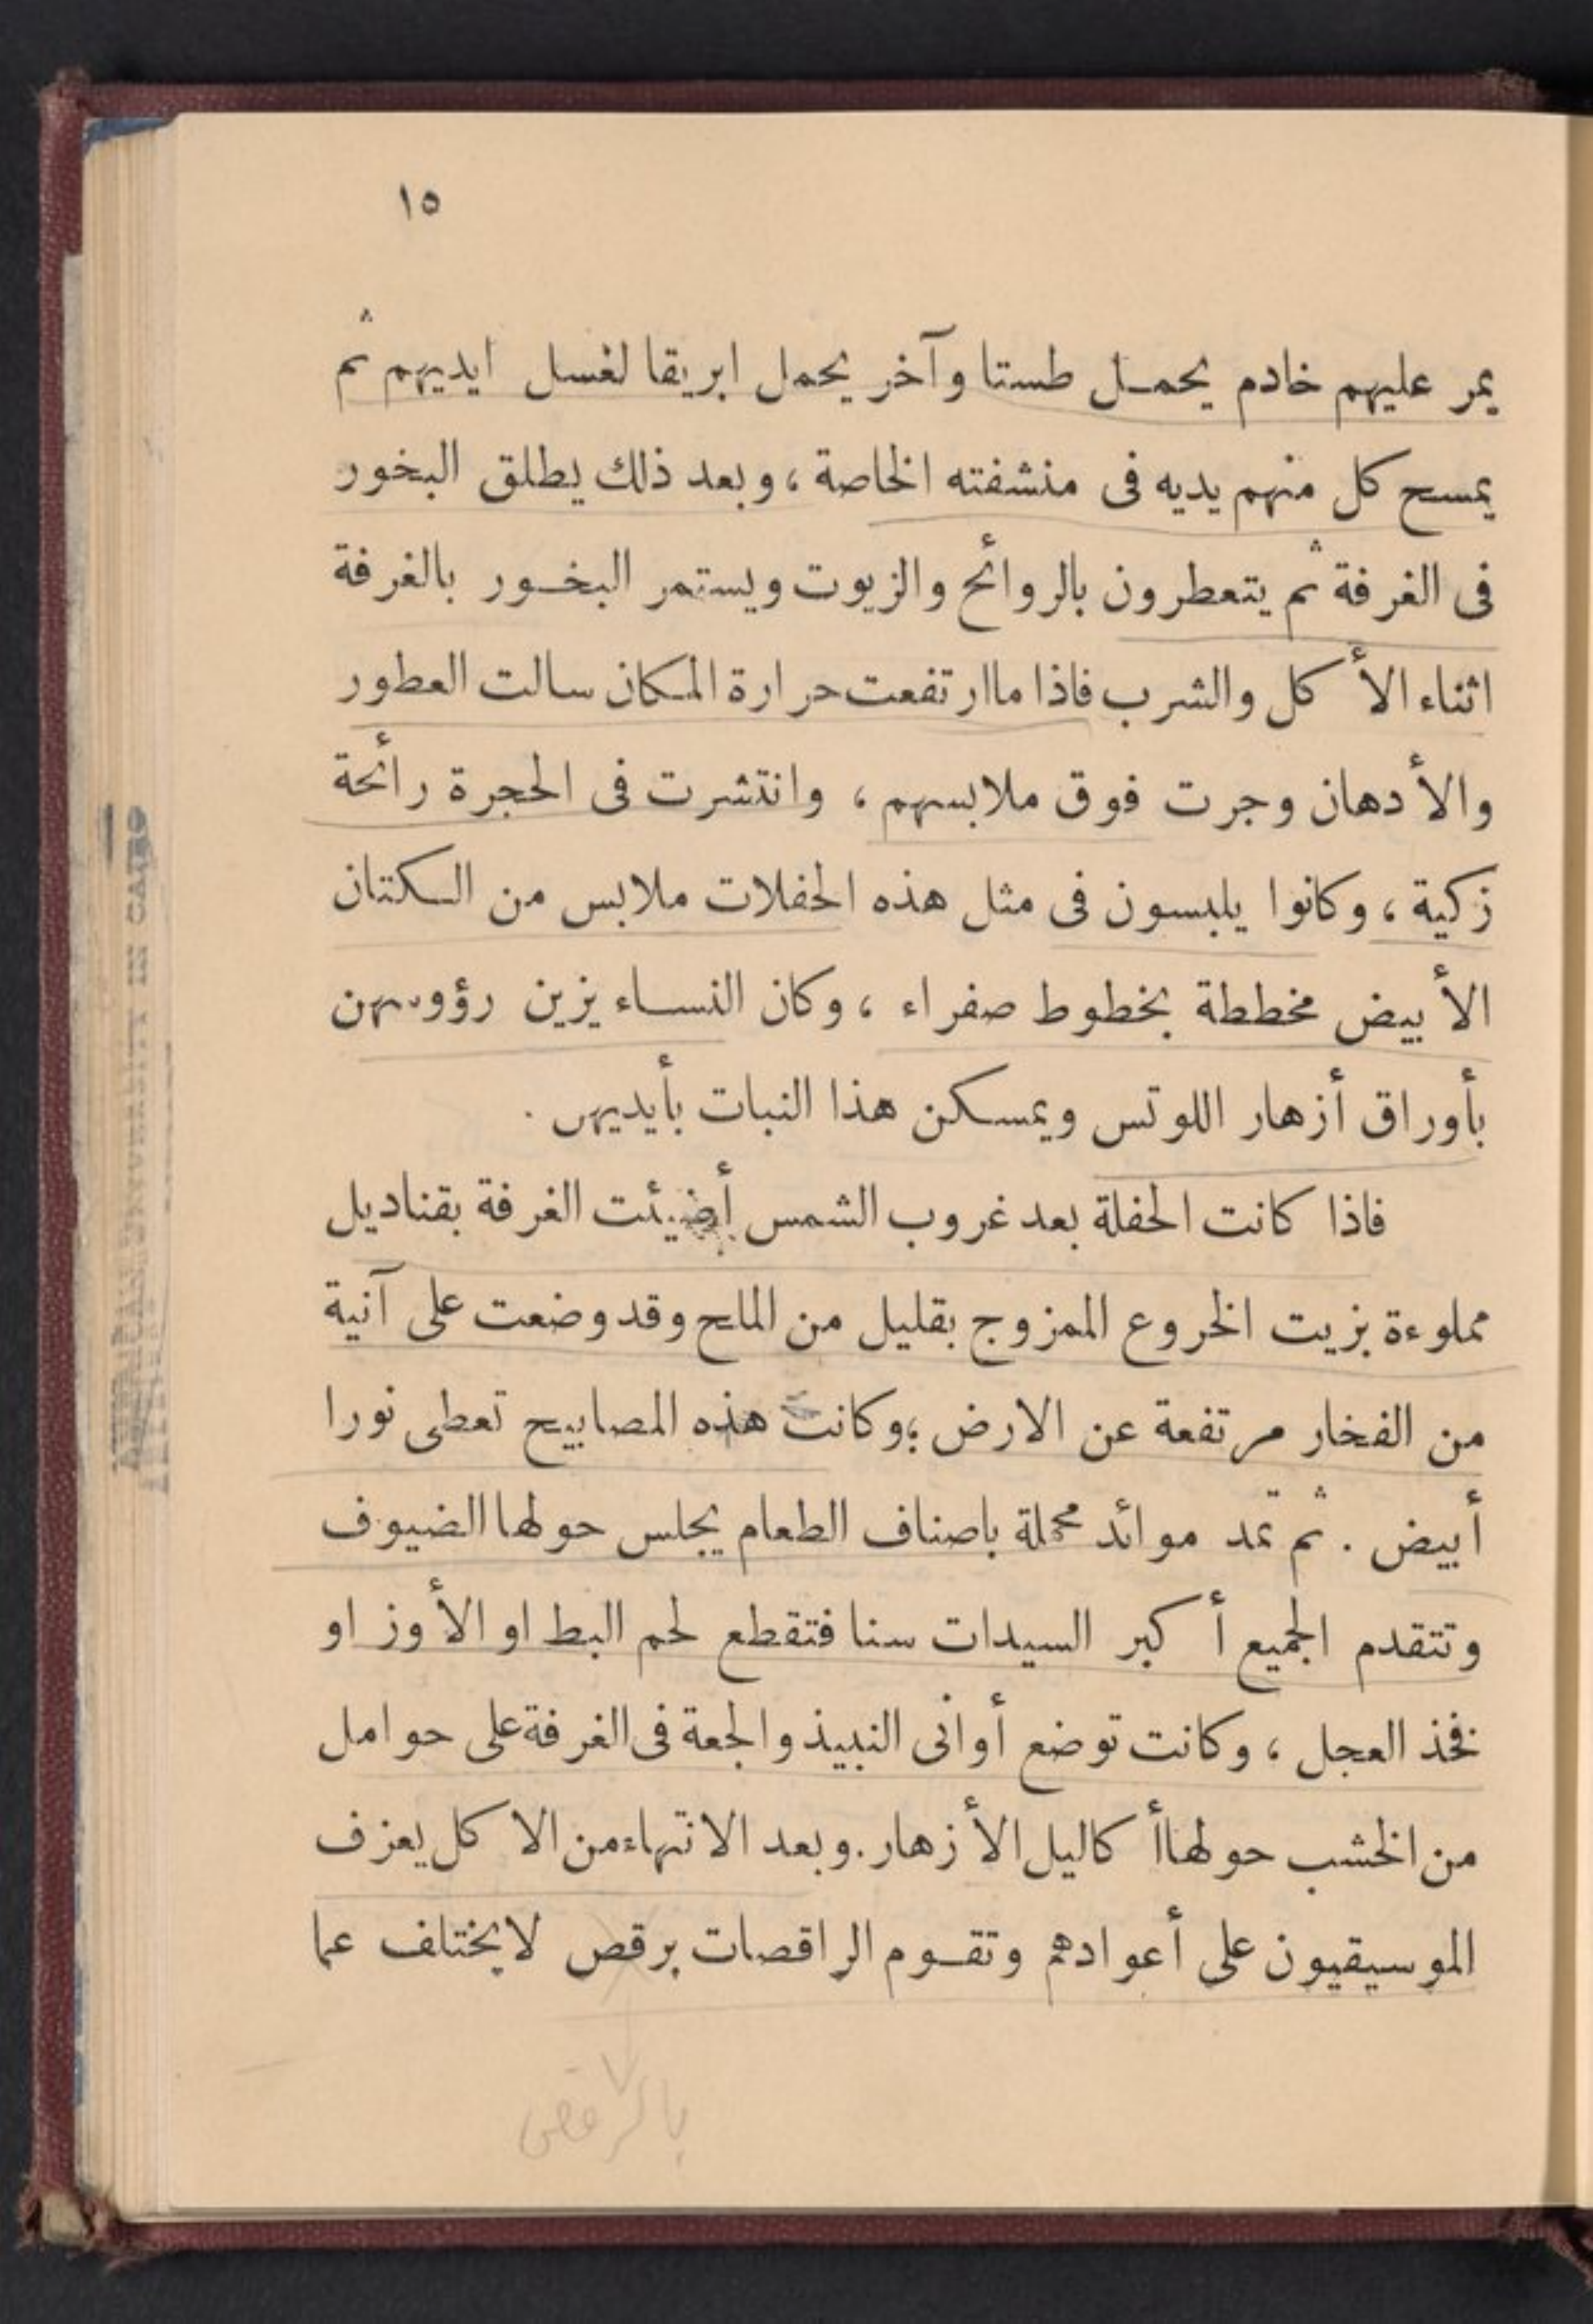 ١٥
يمر عليهم خادم يحمل طستا وآخر يحمل ابريقا لغسل ايديهم ثم
يمسح كل منهم يديه فى منشفته الخاصة ، وبعد ذلك يطلق البخور
فى الغرفة ثم يتعطرون بالروائح والزيوت ويستمر البخور بالغرفة
اثناء الأكل والشرب فاذا ما ارتفعت حرارة المكان سالت العطور
والأدهان وجرت فوق ملابسهم ، وانتشرت فى الحجرة رائحة
زكية ، وكانوا يلبسون فى مثل هذه الحفلات ملابس من الكتان
الأبيض مخططة بخطوط صفراء ، وكان النساء يزين رؤوسهن
بأوراق أزهار اللوتس ويمسكن هذا النبات بأيديهن .
فاذا كانت الحفلة بعد غروب الشمس أضيئت الغرفة بقناديل
مملوءة بزيت الخروع الممزوج بقليل من الملح وقد وضعت على آنية
من الفخار مرتفعة عن الارض ؛ وكانت هذه المصابيح تعطى نورا
أبيض . ثم تمد موائد محملة باصناف الطعام يجلس حولها الضيوف
وتتقدم الجميع أكبر السيدات سنا فتقطع لحم البط او الأوز او
فخذ العجل ، وكانت توضع أوانى النبيذ والجعة فى الغرفة على حوامل
من الخشب حولها أكاليل الأزهار . وبعد الانتهاء من الاكل يعزف
الموسيقيون على أعوادهم وتقوم الراقصات برقص لا يختلف عما
بالرقص